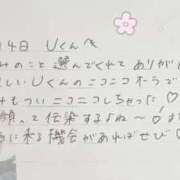 14日 Uくんへ
みのこと選んでくれてありが
しいUくんのニコニコオーラで
みもついニコニコしちゃった♡
顔って伝染するよね♡
に来る機会があればぜひ♡